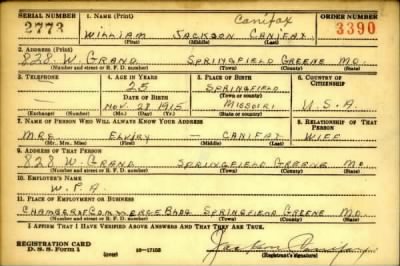 SERIAL NUMBER 1. NAME (Print) Canifax ORDER NUMBER
2773 WILLIAM JACKSON CANIFAX 3390
(First) (Middle) (Last)
2. ADDRESS (Print)
828 W. GRAND SPRINGFIELD GREENE MO.
(Number and street or R. F. D. number) (Town) (County) (State)
3. TELEPHONE 4. AGE IN YEARS 5. PLACE OF BIRTH 6. COUNTRY OF CITIZENSHIP
— 25 SPRINGFIELD
DATE OF BIRTH (Town or county)
— NOV. 28 1915 MISSOURI U.S.A.
(Exchange) (Number) (Mo.) (Day) (Yr.) (State or country)
7. NAME OF PERSON WHO WILL ALWAYS KNOW YOUR ADDRESS 8. RELATIONSHIP OF THAT PERSON
MRS. ELVIRY — CANIFAX WIFE
(Mr., Mrs., Miss) (First) (Middle) (Last)
9. ADDRESS OF THAT PERSON
828 W. GRAND SPRINGFIELD GREENE MO.
(Number and street or R. F. D. number) (Town) (County) (State)
10. EMPLOYER'S NAME
W.P.A.
11. PLACE OF EMPLOYMENT OR BUSINESS
CHAMBER OF COMMERCE BLDG SPRINGFIELD GREENE MO.
(Number and street or R. F. D. number) (Town) (County) (State)
I AFFIRM THAT I HAVE VERIFIED ABOVE ANSWERS AND THAT THEY ARE TRUE.
REGISTRATION CARD
D. S. S. Form 1 (over) 16—17105 (Registrant's signature)